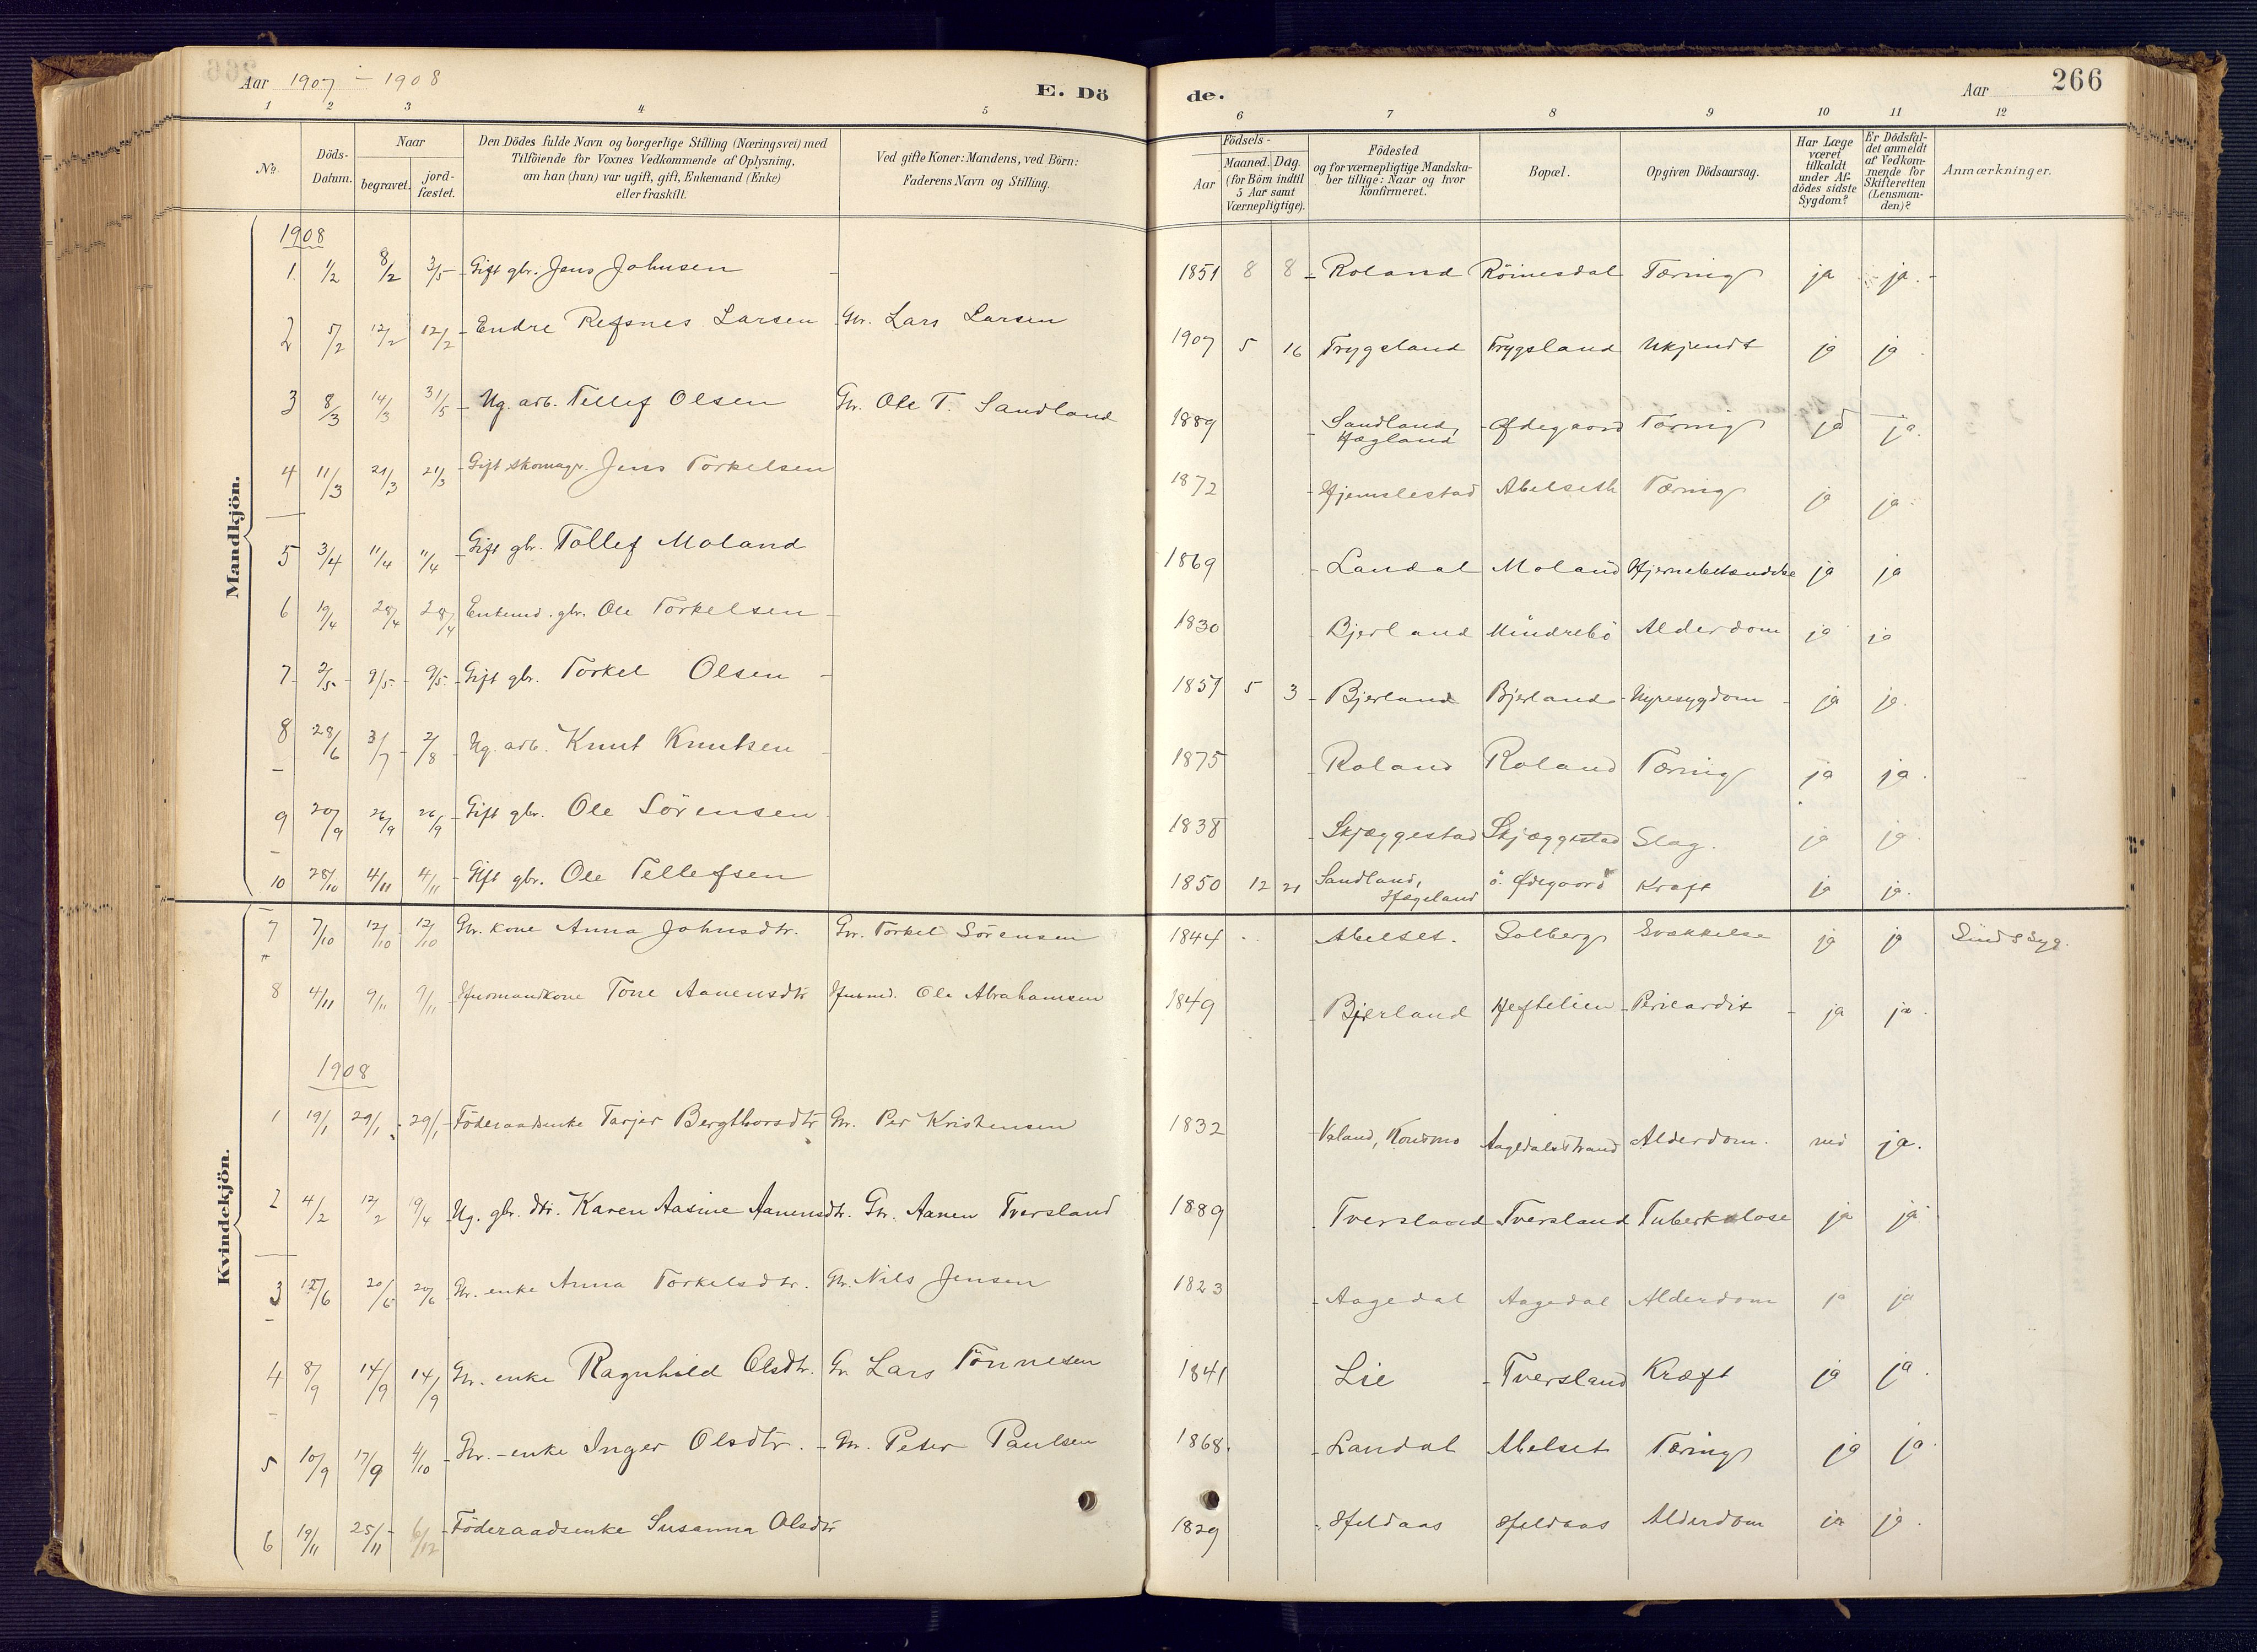 Aar 1907 - 1908
E. Dö
de.
Aar
266
1 2 3 4 5 6 7 8 9 10 11 12
No.
Döds-Datum.
Naar
begravet.
jordfæstet.
Den Dödes fulde Navn og borgerlige Stilling (Næringsvei) med
Tilföiende for Voxnes Vedkommende af Oplysning,
om han (hun) var ugift, gift, Enkemand (Enke)
eller fraskilt.
Ved gifte Koner: Mandens, ved Börn:
Faderens Navn og Stilling.
Födsels-
Aar
Maaned. Dag.
(for Börn indtil
5 Aar samt
Værnepligtige).
Födested
og for værnepligtige Mandska-
ber tillige: Naar og hvor
konfirmeret.
Bopæl.
Opgiven Dödsaarsag.
Har Læge
været
tilkaldt
under Af-
dödes sidste
Sygdom?
Er Dödsfal-
det anmeldt
af Vedkom-
mende for
Skifteretten
(Lensman-
den)?
Anmærkninger.
Mandkjön.
1908
1. 1/2 8/2 3/5 Gift gbr. Jens Johnsen 1851 8 8 Roland Röinesdal Tæring ja ja.
2 5/2 12/2 12/2 Endre Refsnes Larsen Gbr. Lars Larsen 1907 5 16 Trygsland Trygsland Ukjendt ja ja
3 8/3 14/3 31/5 Ug. arb. Tellef Olsen Gbr. Ole T. Sandland 1889 Sandland, Hægland Ødegaard Tæring ja ja.
4 11/3 21/3 21/3 Gift skomagr. Jens Torkelsen 1872 Hjemlestad Abelseth Tæring ja ja
5 3/4 11/4 11/4 Gift gbr. Tollef Moland 1869 Landal Moland Hjernebetændelse ja ja
6 19/4 28/4 28/4 Enkemd. gbr. Ole Torkelsen 1830 Bjerland Mindrebö Alderdom ja ja
7 2/5 9/5 9/5 Gift gbr. Torkel Olsen 1851 5 3 Bjerland Bjerland Nyresygdom ja ja.
8 28/6 3/7 2/8 Ug. arb. Knut Knutsen 1875 Roland Roland Tæring ja ja.
9 20/9 26/9 26/9 Gift gbr. Ole Sörensen 1838 Skjæggestad Skjæggestad Slag. ja ja.
10 28/10 4/11 4/11 Gift gbr. Ole Tellefsen 1850 12 21 Sandland, Hægeland ö. Ødegaard Kræft ja ja.
Kvindekjön.
7 7/10 12/10 12/10 Gbr. kone Anna Johnsdtr. Gbr. Torkel Sörensen 1844 Abelset. Solberg Svækkelse ja ja Sindssyg.
8 4/11 9/11 9/11 Husmandkone Tone Aanensdtr Husmd. Ole Abrahamsen 1849 Bjerland Heftelien Pericardit ja ja.
1908
1 19/1 29/1 29/1 Föderaadsenke Tarjer Bergthorsdtr Gbr. Per Kristensen 1832 Valand, Konsmo Aagedalstrand Alderdom. nei ja.
2 4/2 12/2 19/4 Ug. gbr. dtr. Karen Aasine Aanensdtr. Gbr. Aanen Tversland 1889 Tversland Tversland Tuberkulose ja ja
3 12/6 20/6 20/6 Gbr. enke Anna Torkelsdtr. Gbr. Nils Jensen 1823 Aagedal Aagedal Alderdom ja ja
4 8/9 14/9 14/9 Gbr. enke Ragnhild Olsdtr. Gbr Lars Tönnesen 1841 Lie Tversland Kræft ja ja.
5 10/9 17/9 4/10 Gbr.-enke Inger Olsdtr. Gbr. Peter Paulsen 1868. Landal Abelset Tæring ja ja.
6 19/11 25/11 6/12 Föderaadsenke Susanna Olsdtr 1829 Heldaas Heldaas Alderdom ja ja.